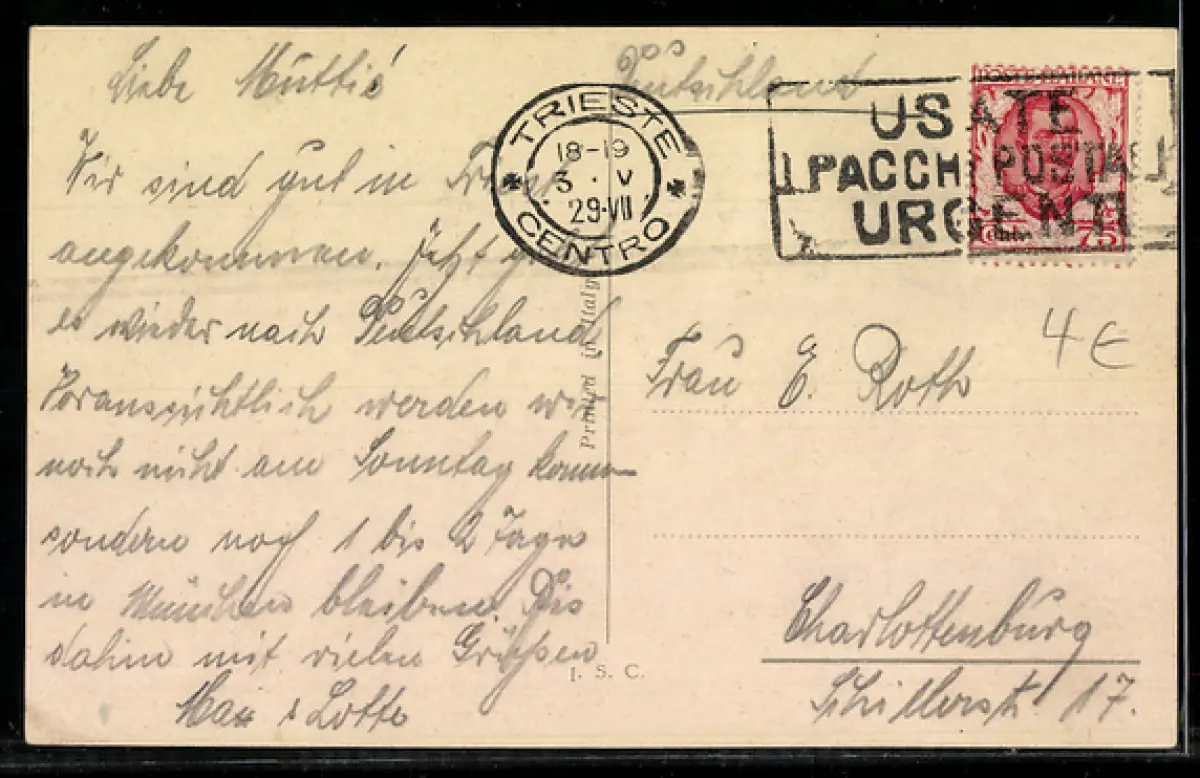 Liebe Muttie!
Wir sind gut in Triest
angekommen. Jetzt
es wieder nach Deutschland
Voraussichtlich werden wir
noch nicht am Sonntag komm
sondern noch 1 bis 2 Tage
in München bleiben. Bis
dahin mit vielen Grüßen
Max & Lotte
Deutschland
TRIESTE
18-19
3 · V
29·VII
CENTRO
USATE
I PACCHI POSTALI
URGENTI
POSTE ITALIANE
Cent. 75
Printed in Italy
4 €
Frau E. Roth
Charlottenburg
Schillerstr. 17.
I. S. C.